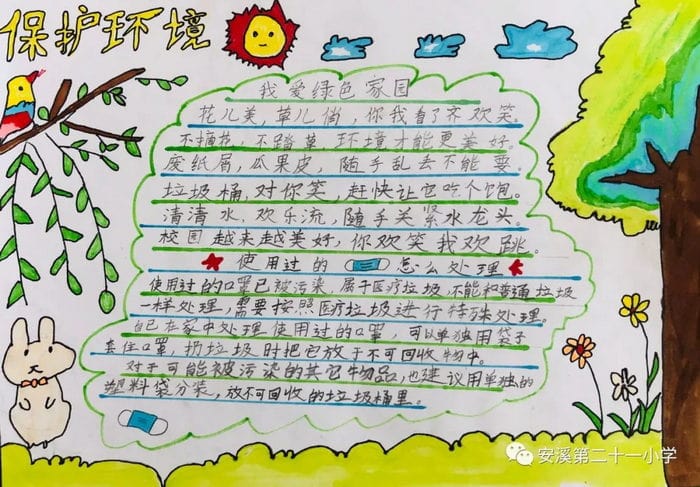 保护环境
我爱绿色家园
花儿美,草儿俏,你我看了齐欢笑。
不摘花,不踏草环境才能更美好。
废纸屑,瓜果皮,随手乱丢不能要
垃圾桶,对你笑,赶快让它吃个饱。
清清水,欢乐流,随手关紧水龙头。
校园越来越美好,你欢笑我欢跳。
使用过的 怎么处理
使用过的口罩已被污染,属于医疗垃圾,不能和普通垃圾
一样处理,需要按照医疗垃圾进行特殊处理。
自己在家中处理使用过的口罩,可以单独用袋子
套住口罩,扔垃圾时把它放于不可回收物中。
对于可能被污染的其它物品,也建议用单独的
塑料袋分装,放不可回收的垃圾桶里。
安溪第二十一小学